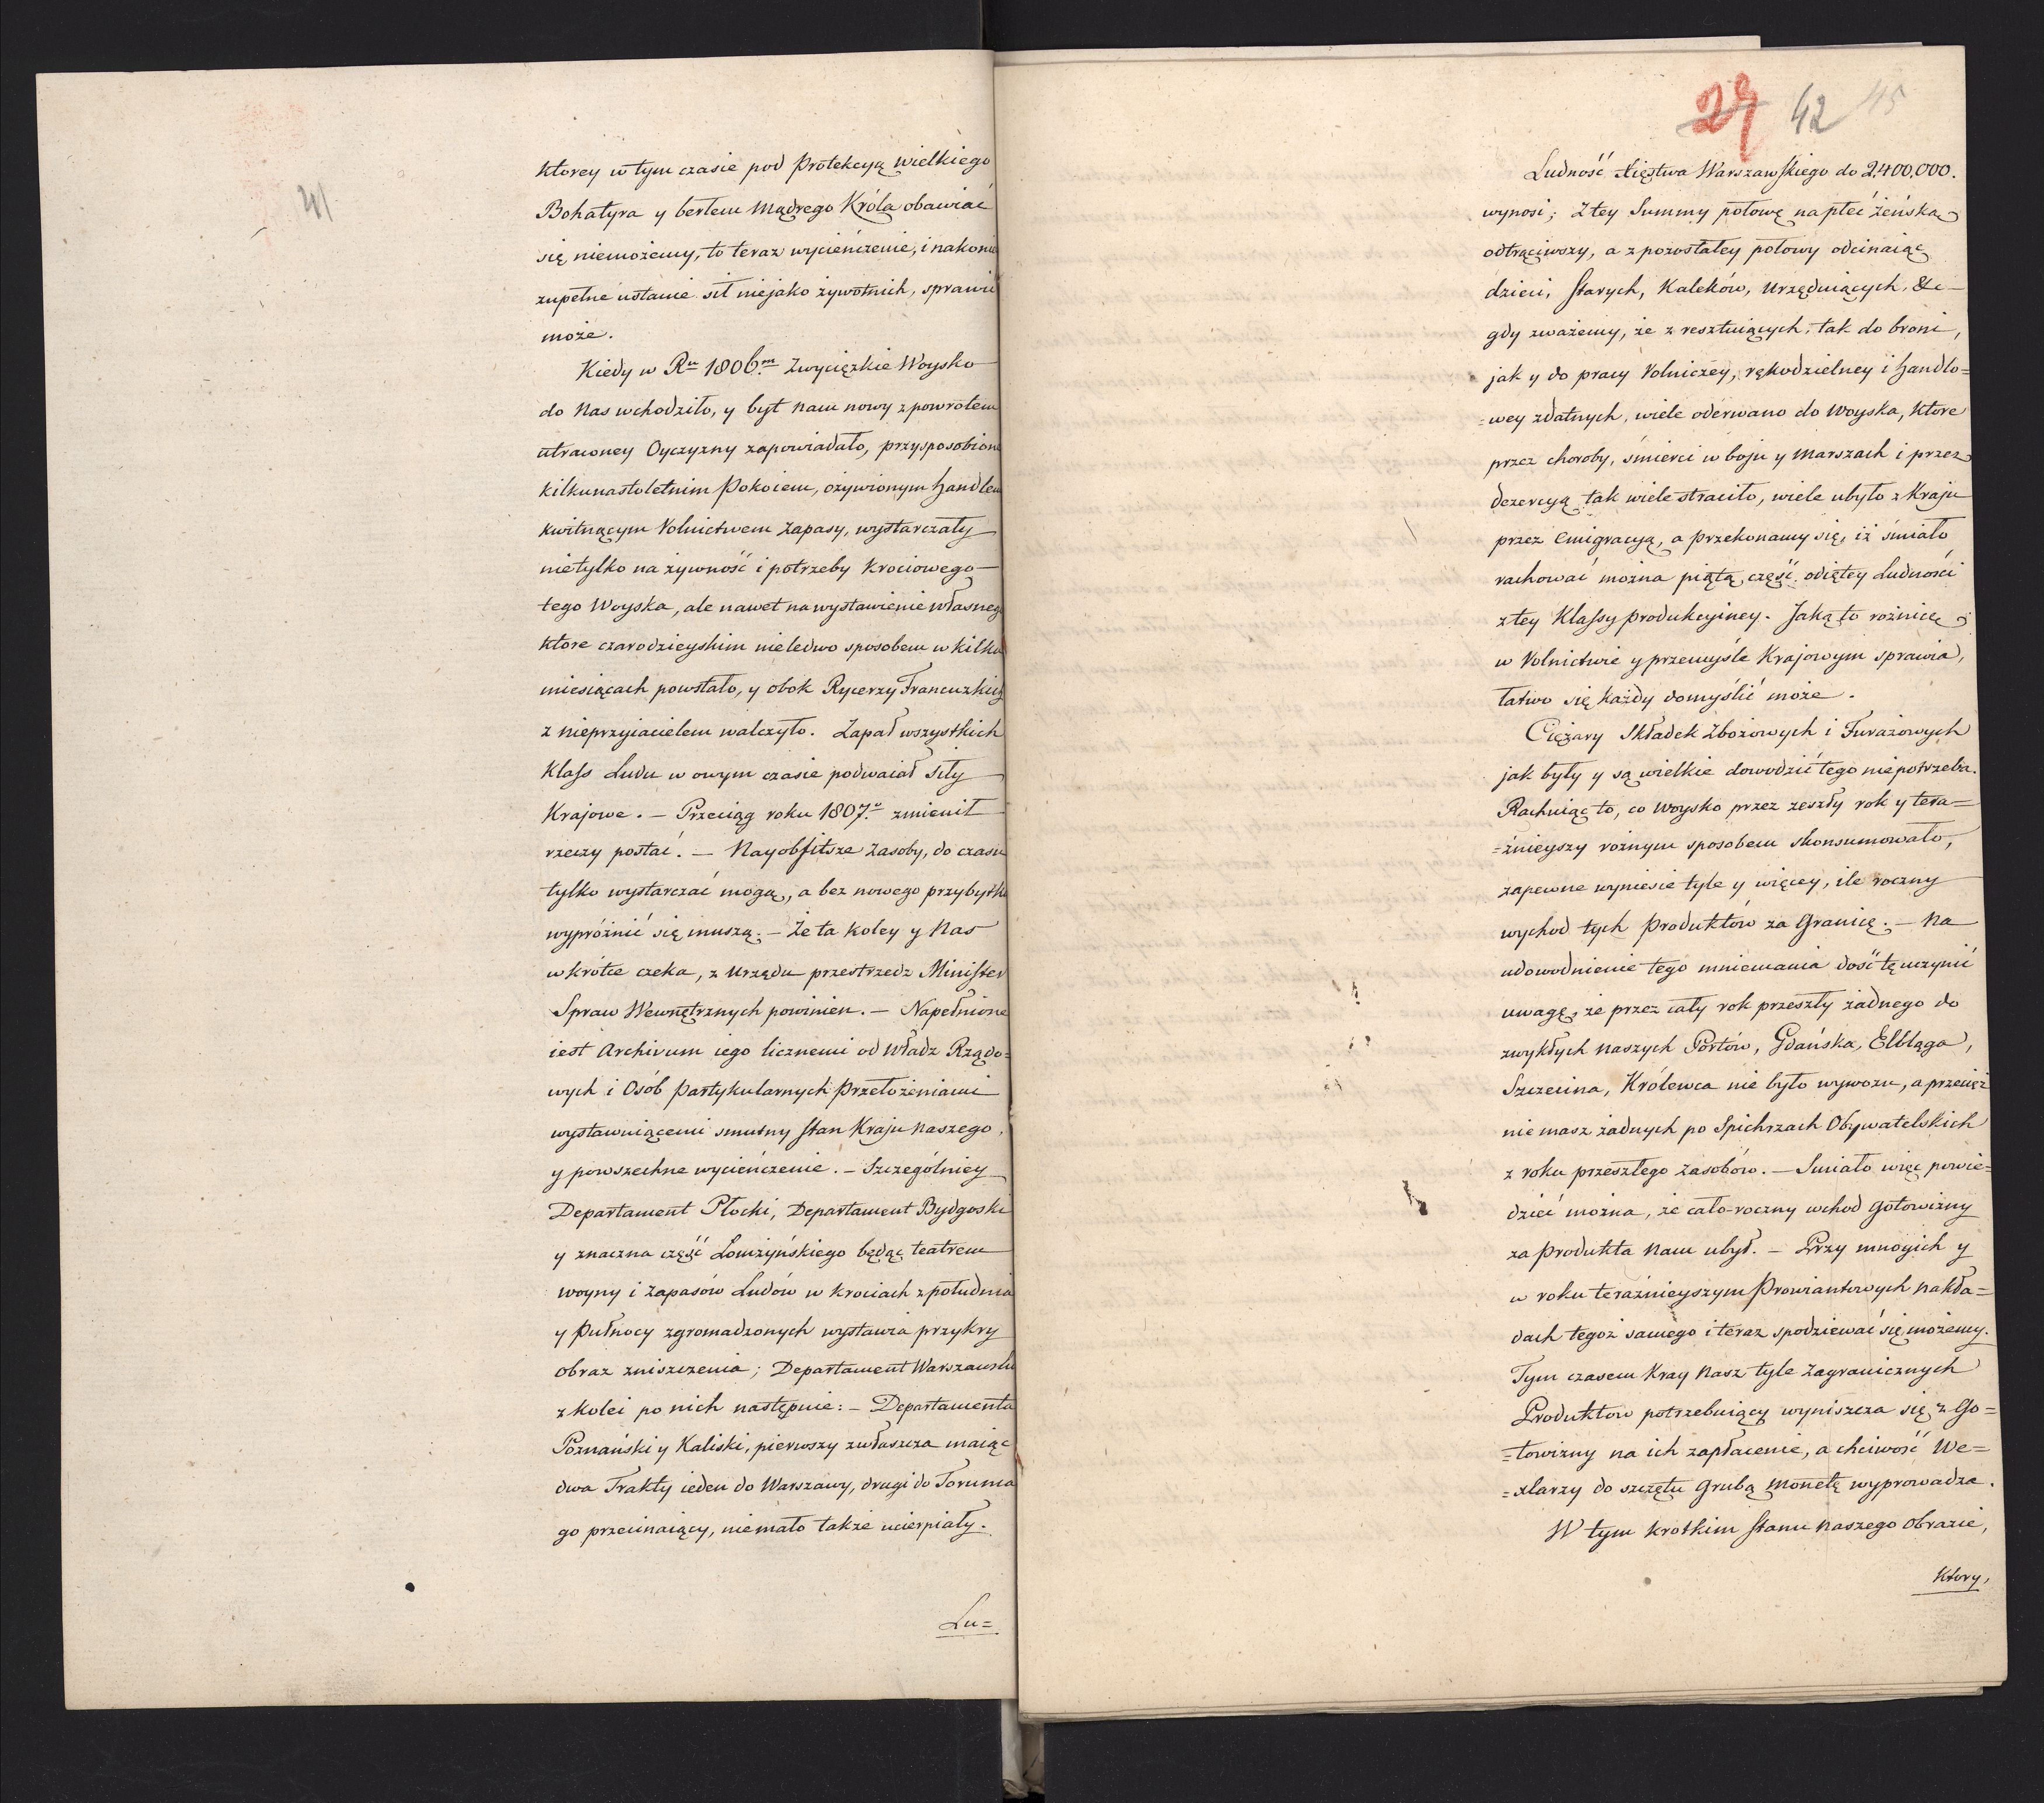 41
ktorey w tym czasie pod Protekcyą wielkiego
Bohatyra y berłem Mądrego Króla obawiać
się niemożemy, to teraz wycieńczenie, i nakonie
zupełne ustanie sił niejako żywotnich, sprawić
może.
Kiedy w Ru 1806m Zwycięzkie Woysko
do Nas wchodziło, y byt nam nowy z powrotem
utraconey Oyczyzny zapowiadało, przysposobione
kilkunastoletnim Pokoiem, ożywionym Handlem
kwitnącym Rolnictwem Zapasy, wystarczały
nietylko na żywność i potrzeby krociowego
tego Woyska, ale nawet na wystawienie własnego
które czarodzieyskim nieledwo sposobem w kilku
miesiącach powstało, y obok Rycerzy Francuzkich
z nieprzyiacielem walczyło. Zapał wszystkich
Klass Ludu w owym czasie podwaiał siły
Krajowe. — Przeciąg roku 1807o zmienił
rzeczy postać. — Nayobfitsze Zasoby, do czasu
tylko wystarczać mogą, a bez nowego przybytku
wypróżnić się muszą. — Że ta koley y Nas
wkrótce czeka, z Urzędu przestrzedz Minister
Spraw Wewnętrznych powinien. — Napełnione
iest Archivum iego licznemi od Władz Rządo=
wych i Osób Partykularnych Przełożeniami
wystawuiącemi smutny stan Kraju Naszego,
y powszechne wycieńczenie. — Szczególniey
Departament Płocki, Departament Bydgoski
y znaczna część Łomżyńskiego będąc teatrem
woyny i Zapasów Ludów w krociach z południa
y Pułnocy zgromadzonych wystawia przykry
obraz zniszczenia; Departament Warszawski
z kolei po nich następuie: — Departamenta
Poznański y Kaliski, pierwszy zwłaszcza maiąc
dwa Trakty ieden do Warszawy, drugi do Torunia
go przecinaiący, niemało także ucierpiały.
Lu=
29 42 45
Ludność Xięstwa Warszawskiego do 2,400,000.
wynosi; Z tey Summy połowę na płeć żeńską
odtrąciwszy, a z pozostałey połowy odcinaiąc
dzieci, starych, Kaleków, Urzęduiących, &c
gdy zważemy, że z resztuiących, tak do broni,
jak y do pracy Rolniczey, rękodzielney i Handlo=
=wey zdatnych, wiele oderwano do Woyska, które
przez choroby, śmierci w boju y Marszach i przez
dezercyą tak wiele straciło, wiele ubyło z Kraju
przez Emigracyą, a przekonamy się, iż śmiało
rachować można piątą część odiętey Ludności
z tey Klassy produkcyiney. Jaką to roźnicę
w Rolnictwie y przemyśle Krajowym sprawia,
łatwo się każdy domyślić może.
Ciężary Składek Zbożowych i Furażowych
jak były y są wielkie dowodzić tego niepotrzeba.
Rachuiąc to, co Woysko przez zeszły rok y tera=
=żnieyszy rożnym sposobem skonsumowało,
zapewne wyniesie tyle y więcey, ile roczny
wychod tych Produktów za Granicę. — Na
udowodnienie tego mniemania dość tę uczynić
uwagę, że przez cały rok przeszły żadnego do
zwykłych naszych Portów, Gdańska, Elbląga,
Szczecina, Królewca nie było wywozu, a przecież
nie masz żadnych po Spichrzach Obywatelskich
z roku przeszłego zasobów. — Smiało więc powie=
dzieć można, że cało-roczny wchod gotowizny
za Produkta Nam ubył. — Przy mnogich y
w roku terażnieyszym Prowiantowych nakła=
dach tegoż samego i teraz spodziewać się możemy.
Tym czasem Kray Nasz tyle Zagranicznych
Produktow potrzebuiący wyniszcza się z Go=
=towizny na ich zapłacenie, a chciwość We=
=xlarzy do szczętu Grubą Monetę wyprowadza.
W tym krotkim stanu naszego Obrazie,
Ktory,